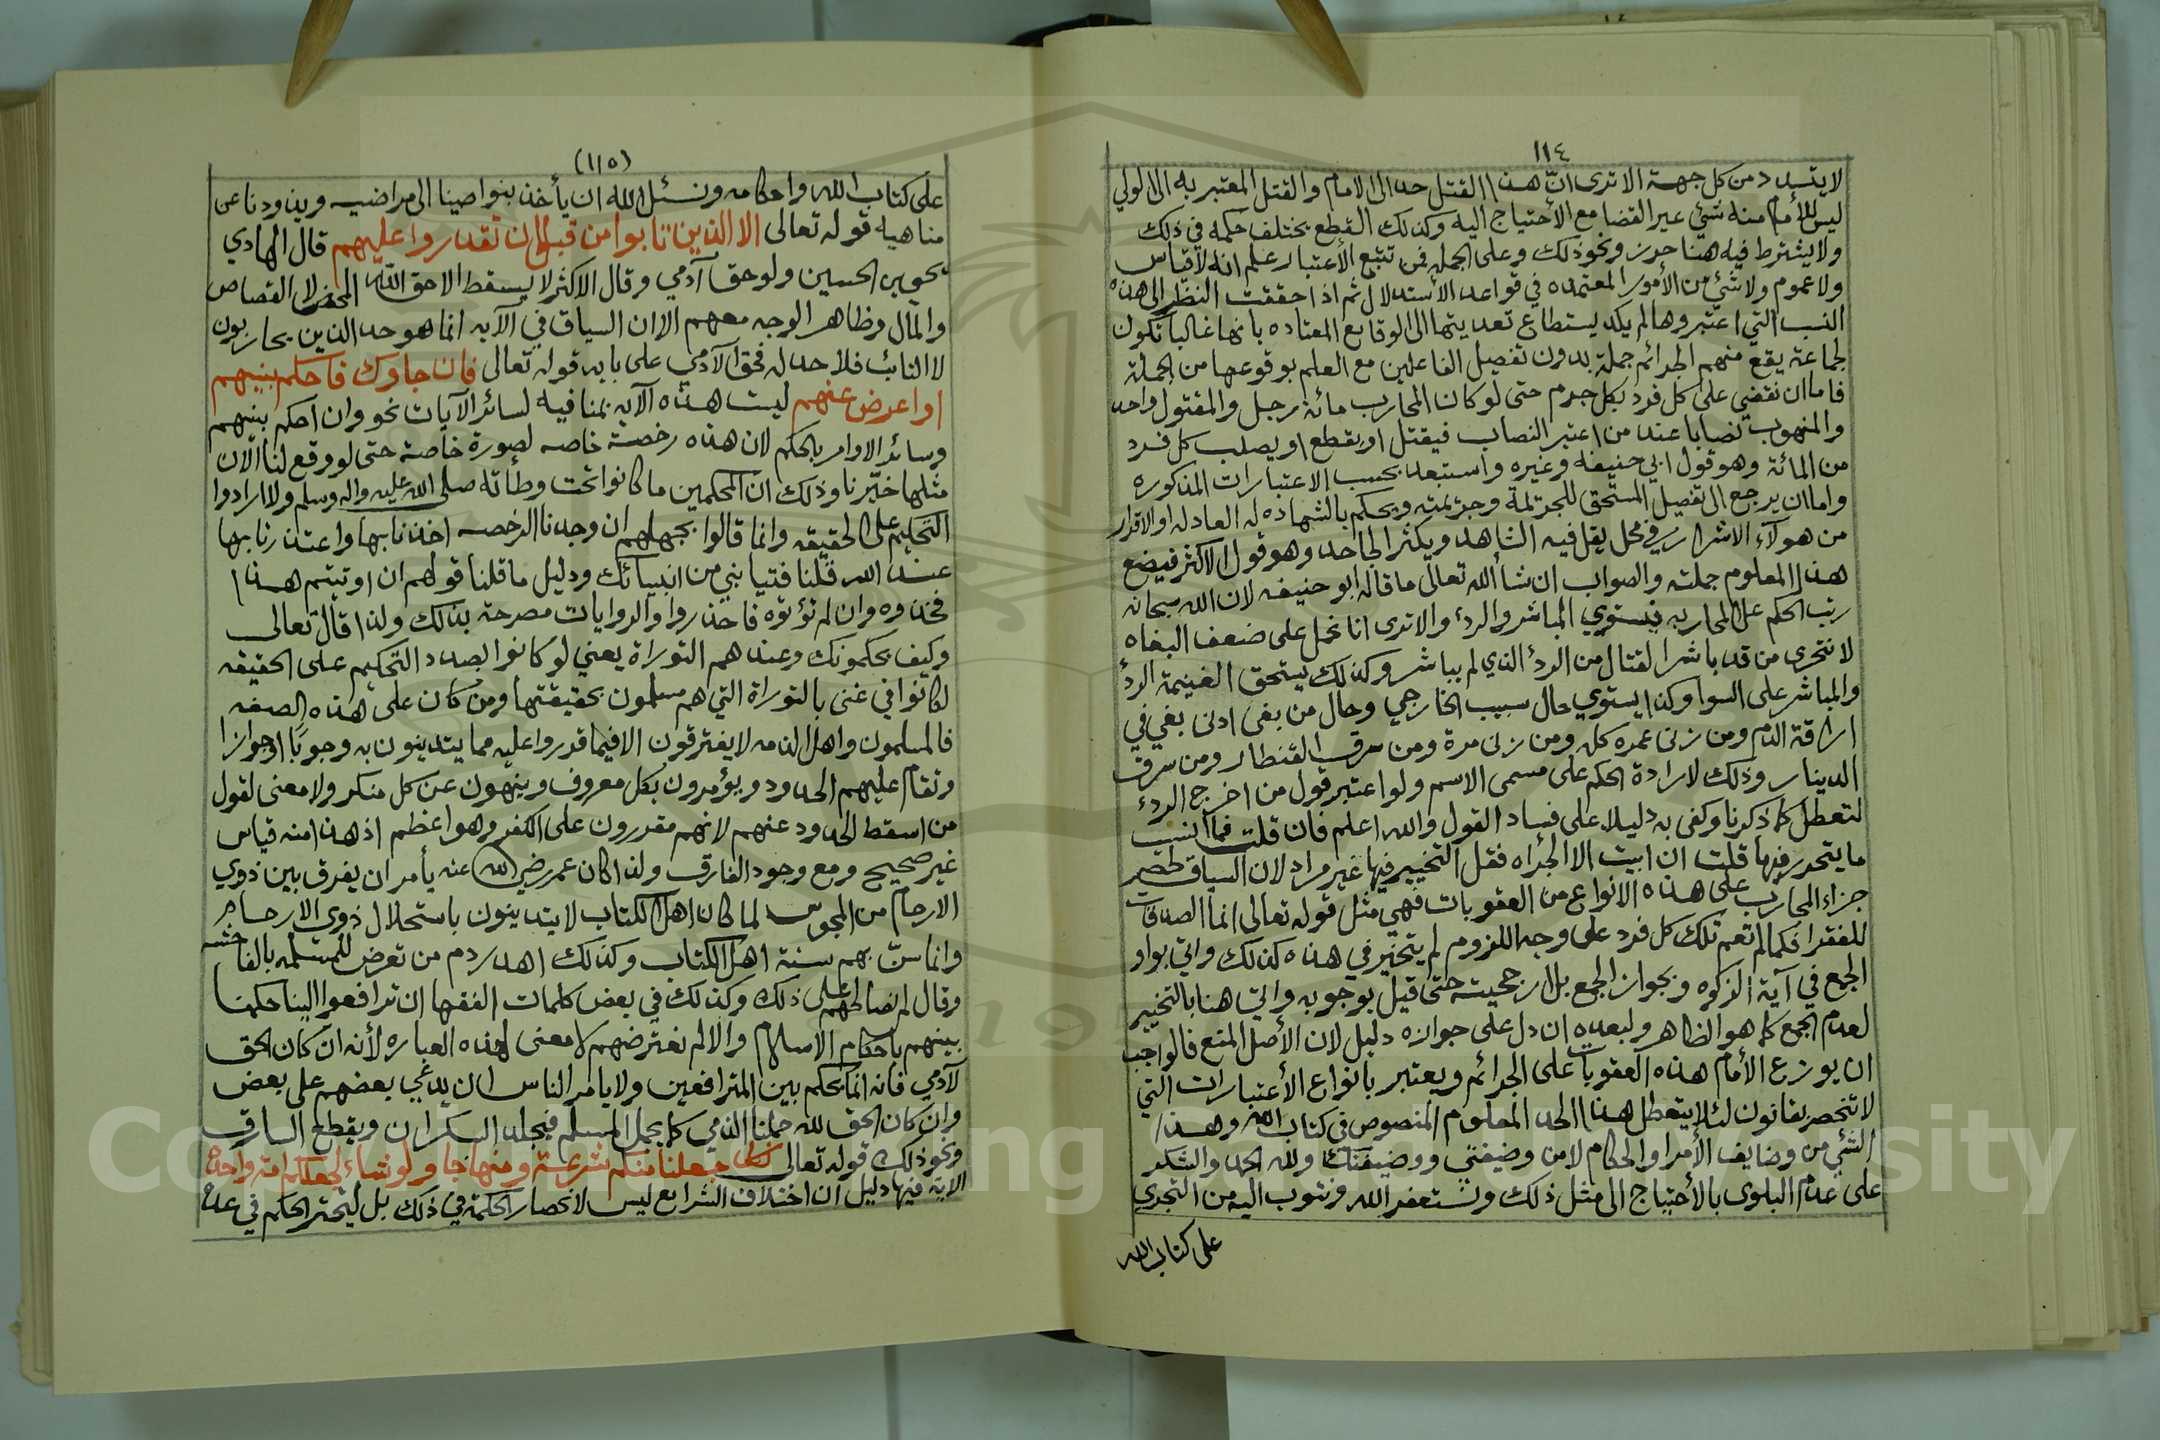 ١١٤
لا يتسدد من كل جهة الا ترى انّ هذا القتل حد الى الامام والقتل المعتبر به الى الولي
ليس للأمام منه شئي غير القضا مع الأحتياج اليه وكذلك القطع يختلف حكمه في ذلك
ولا يشترط فيه هنا حرز ونحو ذلك وعلى الجمله فمن تتبّع الأعتبار علم انه لا قياس
ولا عموم ولا شئ من الأمور المعتمده في قواعد الأستدلال ثم اذا حققت النظر الى هذه
النسب التي اعتبروها لم يكد يستطاع تعديتها الى الوقايع المعتاده بانها غالبا تكون
لجماعة يقع منهم الجرائم جملة بدون تفصيل الفاعلين مع العلم بوقوعها من الجملة
فاما ان نقضي على كل فرد بكل جرم حتى لو كان المحارب مائة رجل والمقتول واحد
والمنهوب نصابا عند من اعتبر النصاب فيقتل او يقطع او يصلب كل فرد
من المائة وهو قول ابي حنيفه وغيره واستبعد بحسب الاعتبارات المذكوره
واما ان يرجع الى تفصيل المستحق للجريمة وجريمته ويحكم بالشهاده له العادله او الاقرار
من هولآء الاشرار في محل يقل فيه الشاهد ويكثر الجاحد وهو قول الاكثر فيضع
هذا المعلوم جملته والصواب ان شا الله تعالى ما قاله ابو حنيفه لان الله سبحانه
رتب الحكم على المحاربه فيستوي المباشر والردء والا ترى انا نحمل على ضعف البغاه
لا نتحرى من قد باشر القتال من الردء الذي لم يباشر وكذلك يستحق الغنيمة الردء
والمباشر على السوا وكذا يستوي حال سبب الخارجي وحال من بغى ادنى بغي في
اراقة الدم ومن زنى عمره كله ومن زنى مرة ومن سرق القنطار ومن سرق
الدينار وذلك لارادة الحكم على مسمى الاسم ولو اعتبر قول من اخرج الردء
لتعطل كما ذكرنا وكفى به دليلا على فساد القول والله اعلم فان قلت فما انسب
ما يتحرر فيها قلت ان ابيت الا الجراه فقل التخيير فيها غير مراد لان السياق لحصر
جزاء المحارب على هذه الانواع من العقوبات فهي مثل قوله تعالى انما الصدقات
للفقرا فكما لم تعم تلك كل فرد على وجه اللزوم لم يتخير في هذه كذلك واتى بواو
الجمع في آية الزكوه ونجواز الجمع بل ارجحيته حتى قيل بوجوبه واتى هنا بالتخيير
لعدم الجمع كما هو الظاهر ولبعده ان دل على جوازه دليل لان الأصل المنع فالواجب
ان يوزع الأمام هذه العقوبات على الجرائم ويعتبر بانواع الأعتبارات التي
لا تنحصر بقانون لئلا يتعطل هذا الحد المعلوم المنصوص في كتاب الله وهذا
الشئ من وضايف الأمرا والحكام لا من وضيفتي ووضيفتك ولله الحمد والشكر
على عدم البلوى بالأحتياج الى مثل ذلك ونستغفر الله ونتوب اليه من التجري
على كتاب الله
(١١٥)
على كتاب الله واحكامه ونسئل الله ان يأخذ بنواصينا الى مراضيه ويذودنا عن
مناهيه قوله تعالى الا الذين تابوا من قبل ان تقدروا عليهم قال الهادي
يحيى بن الحسين ولو حق آدمي وقال الاكثر لا يسقط الا حق الله المحض لا القصاص
والمال وظاهر الوجه معهم الا ان السياق في الآيه انما هو حد الذين يحاربون
لا التائب فلا حد له فحق الآدمي على بابه قوله تعالى فان جاوك فاحكم بينهم
او اعرض عنهم ليست هذه الآيه بمنافيه لسائر الآيات نحو وان احكم بينهم
وسائر الاوامر بالحكم لان هذه رخصة خاصه لصورة خاصة حتى لو وقع لنا الآن
مثلها خيّرنا وذلك ان المحكمين ما كانوا تحت وطأته صلى الله عليه واله وسلم ولا ارادوا
التحكيم على الحقيقه وانما قالوا بجهلهم ان وجدنا الرخصه اخذنا بها واعتذرنا بها
عند الله قلنا فتيا نبي من انبيائك ودليل ما قلنا قولهم ان اوتيتم هذا
فخذوه وان لم تؤتوه فاحذروا والروايات مصرحة بذلك ولذا قال تعالى
وكيف يحكمونك وعندهم التوراة يعني لو كانوا بصدد التحكيم على الحقيقه
لكانوا في غنى بالتوراة التي هم مسلمون بحقيقتها ومن كان على هذه الصفه
فالمسلمون واهل الذمه لا يفترقون الا فيما قدروا عليه مما يتدينون به وجوبًا او جوازا
وتقام عليهم الحدود ويؤمرون بكل معروف وينهون عن كل منكر ولا معنى لقول
من اسقط الحدود عنهم لانهم مقدرون على الكفر وهو اعظم اذ هذا منه قياس
غير صحيح ومع وجود الفارق ولذا كان عمر رضي الله عنه يأمر ان يفرق بين ذوي
الارحام من المجوس لما كان اهل الكتاب لا يتدينون باستحلال ذوي الارحام
وانما سنّ بهم سنة اهل الكتاب وكذلك اهدر دم من تعرض للمسلمه بالفاحشه
وقال لم نصالحهم على ذلك وكذلك في بعض كلمات الفقها ان ترافعوا الينا حكمنا
بينهم باحكام الاسلام والا لم نعترضهم لا معنى لهذه العباره لأنه ان كان الحق
لآدمي فانه انما يحكم بين المترافعين ولا يامر الناس ان يدعي بعضهم على بعض
وان كان الحق لله حملنا الذمي كما يحمل المسلم فيجلد السكران ويقطع السارق
ونحو ذلك قوله تعالى لكل جعلنا منكم شرعة ومنهاجا ولو شاء لجعلكم امة واحدة
الايه فيها دليل ان اختلاف الشرايع ليس لانحصار الحكمة في ذلك بل ليتحتم الحكم في عدة